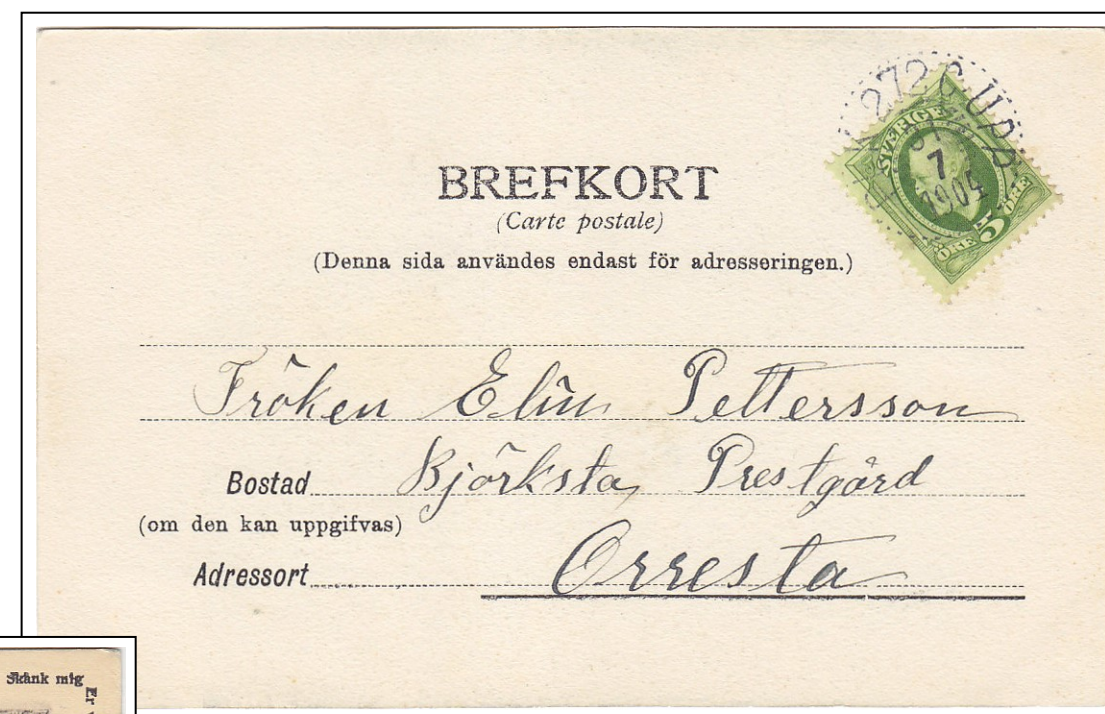 SVERIGE
7
1905
5
ÖRE
ÖRE
BREFKORT
(Carte postale)
(Denna sida användes endast för adresseringen.)
Fröken Elin Pettersson
Bostad Björksta, Prestgård
(om den kan uppgifvas)
Adressort Orresta
Skänk mig
Er